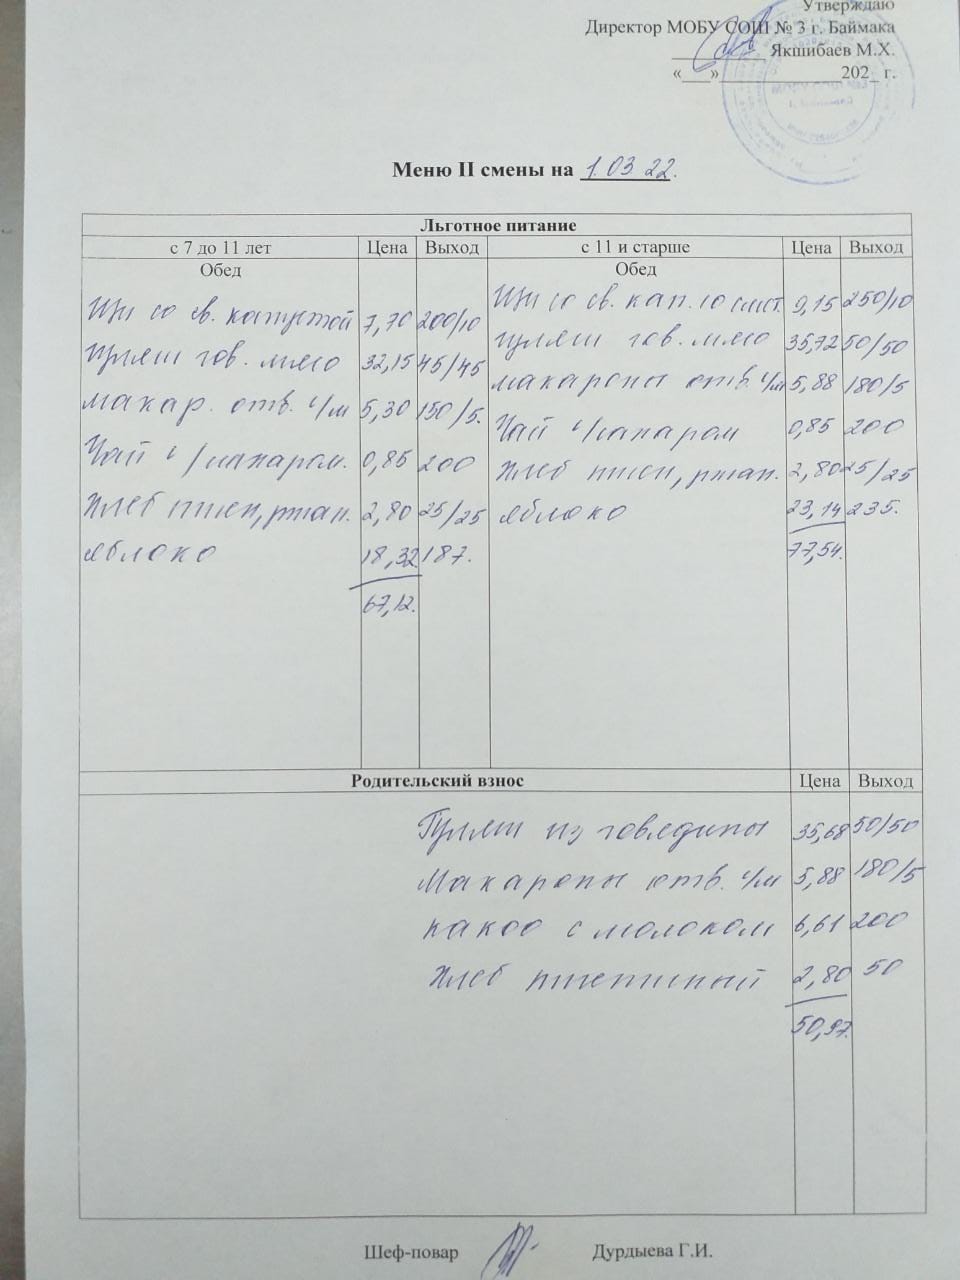 Утверждаю
Директор МОБУ СОШ № 3 г. Баймака
Якшибаев М.Х.
«___»______________202_ г.
Меню II смены на 1.03 22.
Льготное питание
с 7 до 11 лет Цена Выход с 11 и старше Цена Выход
Обед Обед
Щи со св. капустой 7,70 200/10 Щи со св. кап. со смет. 9,15 250/10
гуляш гов. мясо 32,15 45/45 гуляш гов. мясо 35,72 50/50
макар. отв. с/м 5,30 150/5. макароны отв. с/м 5,88 180/5
Чай с/сахаром. 0,85 200 Чай с/сахаром 0,85 200
Хлеб пшен, ржан. 2,80 25/25 Хлеб пшен, ржан. 2,80 25/25
яблоко 18,32 187. яблоко 23,14 235.
67,12. 77,54.
Родительский взнос Цена Выход
Гуляш из говядины 35,68 50/50
Макароны отв. с/м 5,88 180/5
какоо с молоком 6,61 200
Хлеб пшеничный 2,80 50
50,97.
Шеф-повар Дурдыева Г.И.